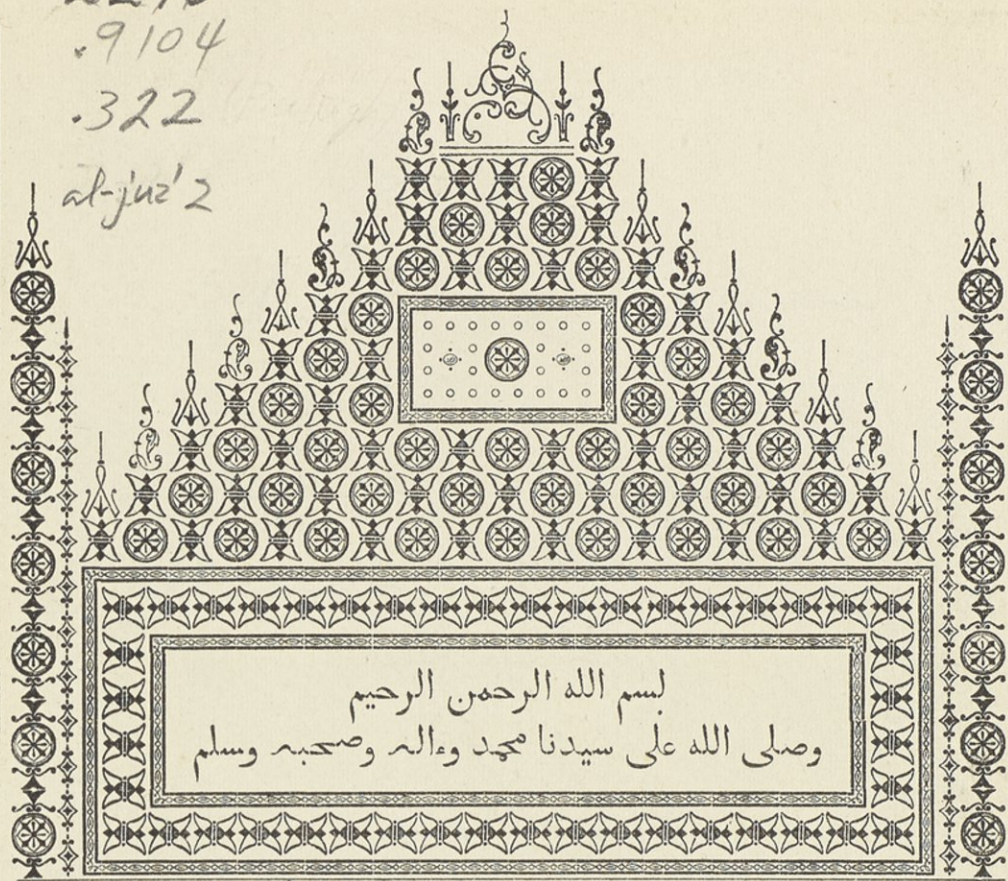 .9104
.322
al-juz' 2
بسم الله الرحمن الرحيم
وصلى الله على سيدنا محمد وءاله وصحبه وسلم